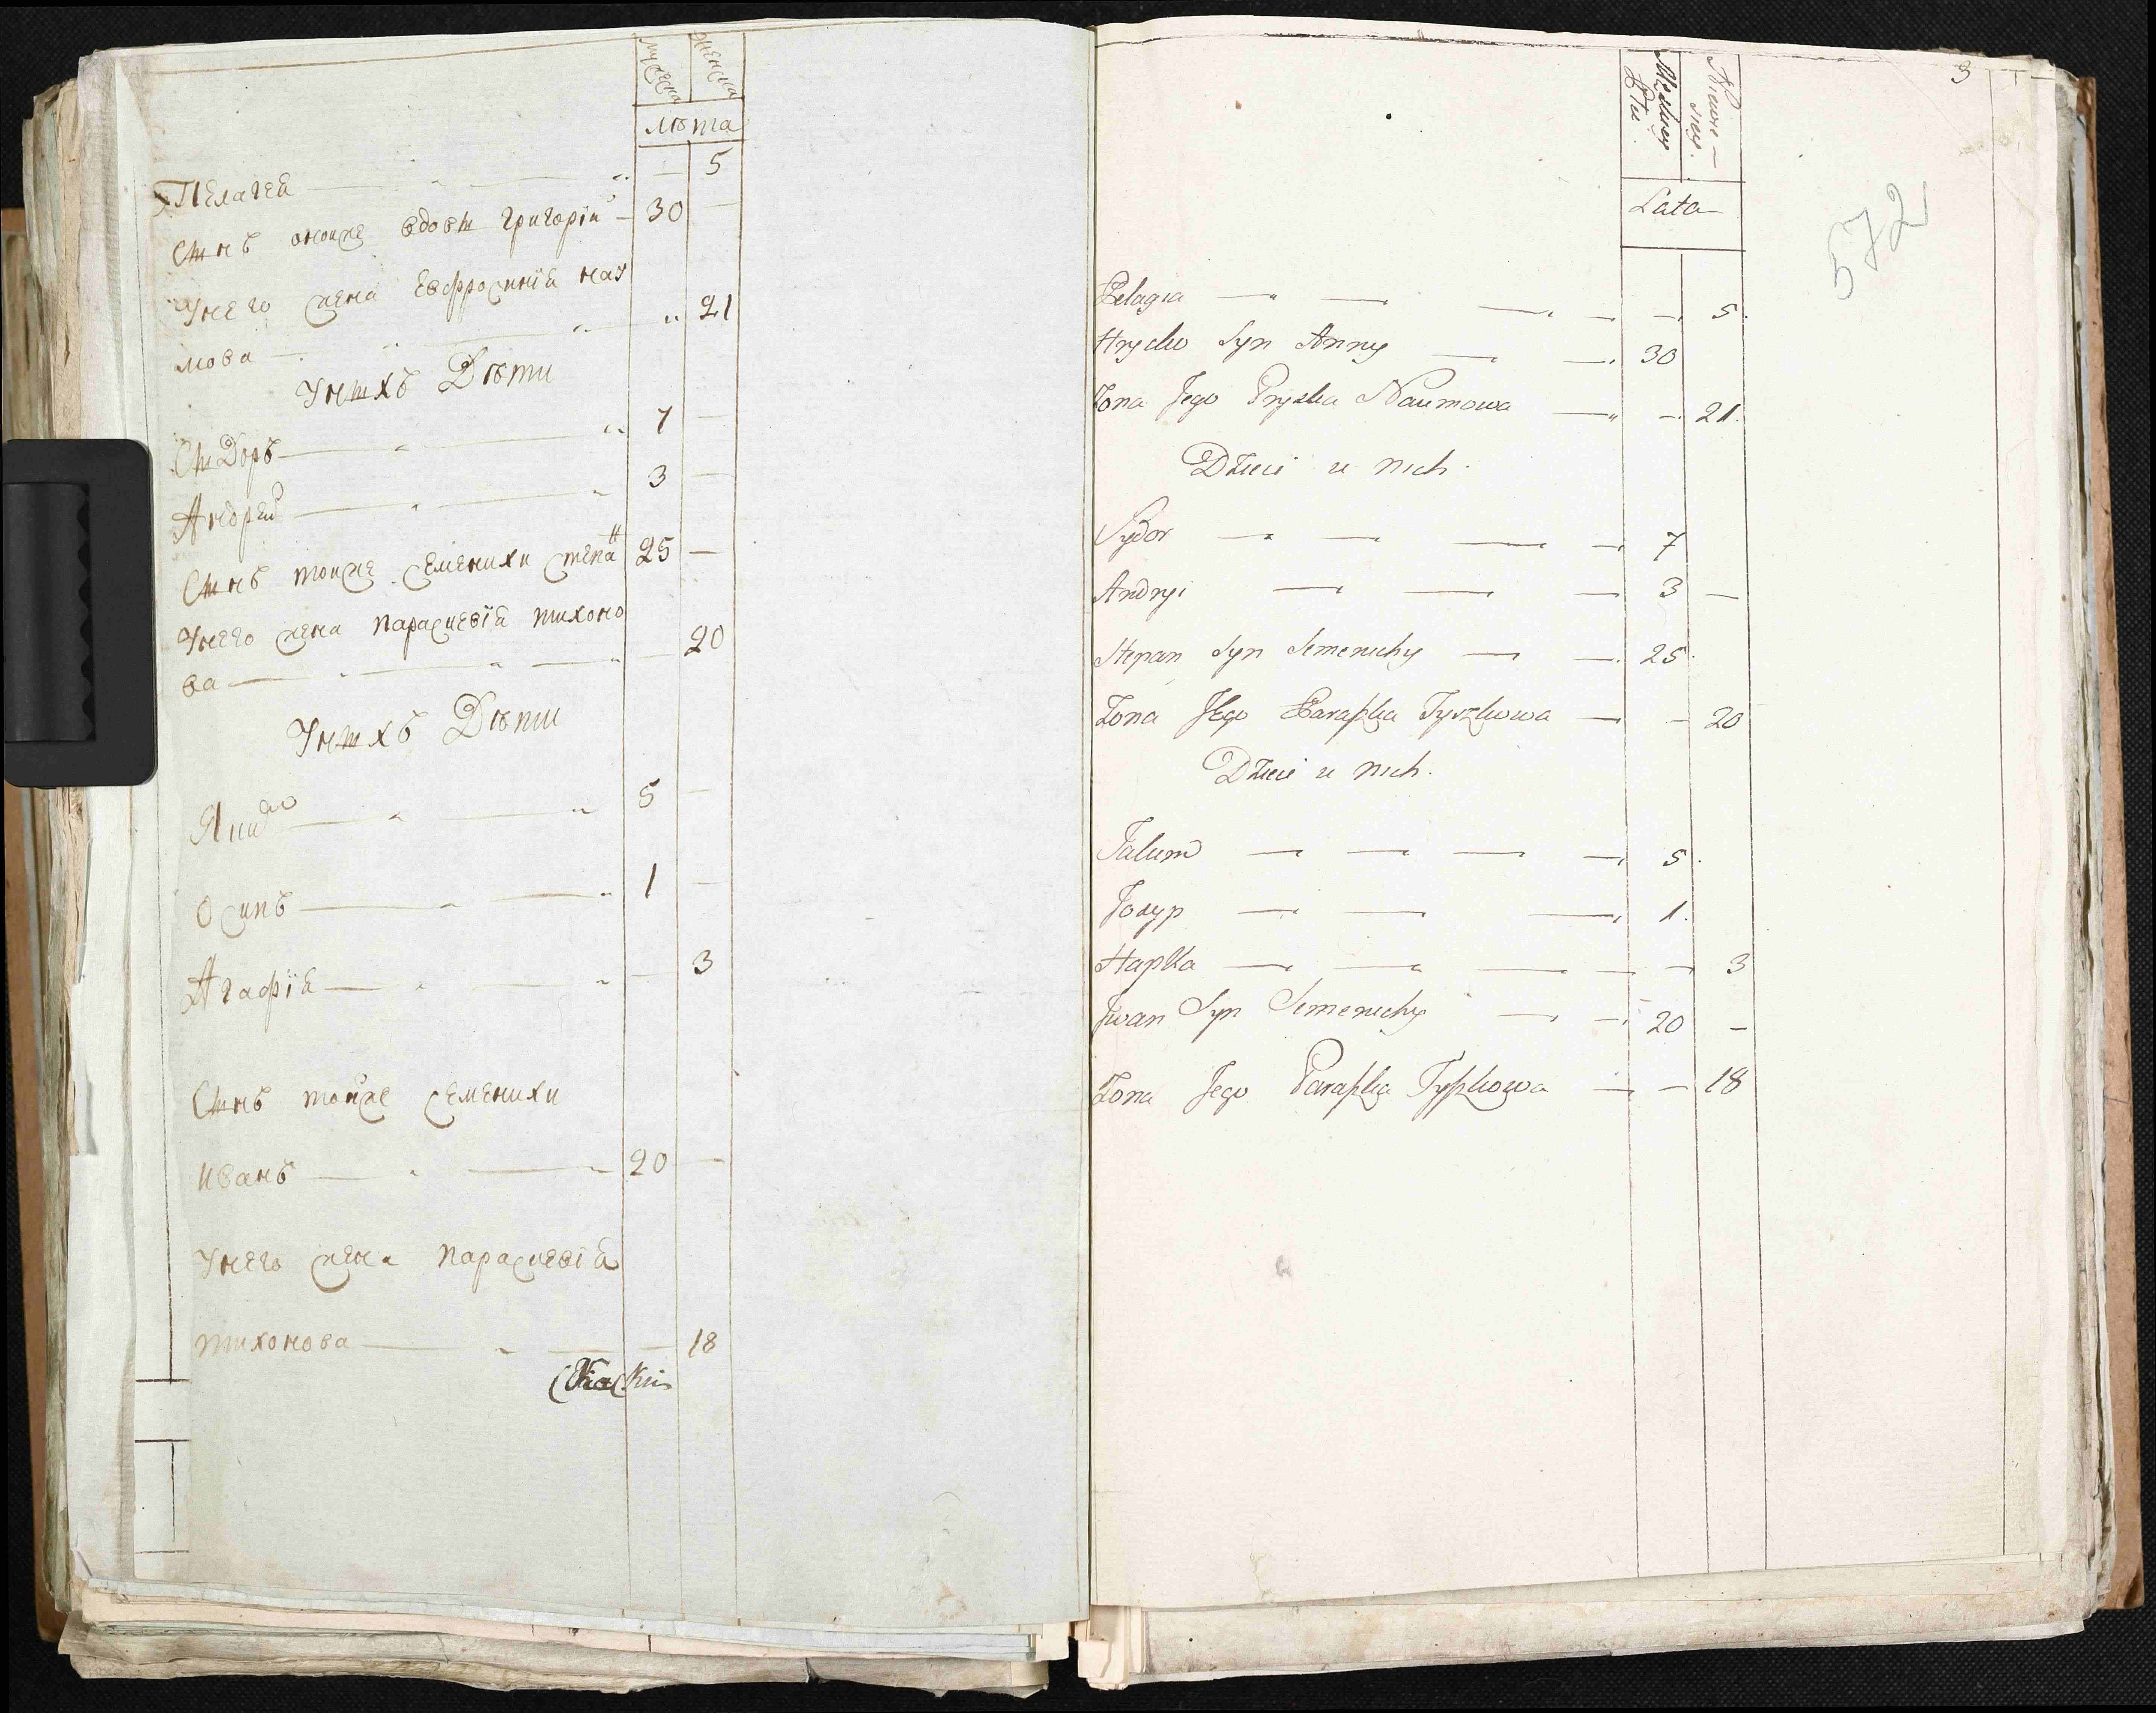 мужеска женска
лѣта
Пелагея 5
Сынъ оноиже вдовы Григорій 30
У него жена Евфросинія Нау
мова 21
У ныхъ Дѣти
Сыдоръ 7
Андрей 3
Сынъ тоиже Семенихи Степанъ 25
У него жена Параскевія Тихоно
ва 20
У ныхъ Дѣти
Якимъ 5
Осипъ 1
Агафія 3
Сынъ тоиже Семенихи
Иванъ 20
У него жена Параскевія
Тихонова 18
3
572
Męskiey Płci Niewie- sciey.
Lata
Pelagia 5.
Hryćko Syn Anny 30
Żona Jego Pryśka Naumowa 21.
Dzieci u nich.
Sydor 7
Andryi 3
Stepan Syn Semenichy 25
Żona Jego Paraska Tyszkowa 20
Dzieci u nich.
Jakim 5
Josyp 1.
Hapka 3
Jwan Syn Semenichy 20
Żona Jego Paraska Tyszkowa 18